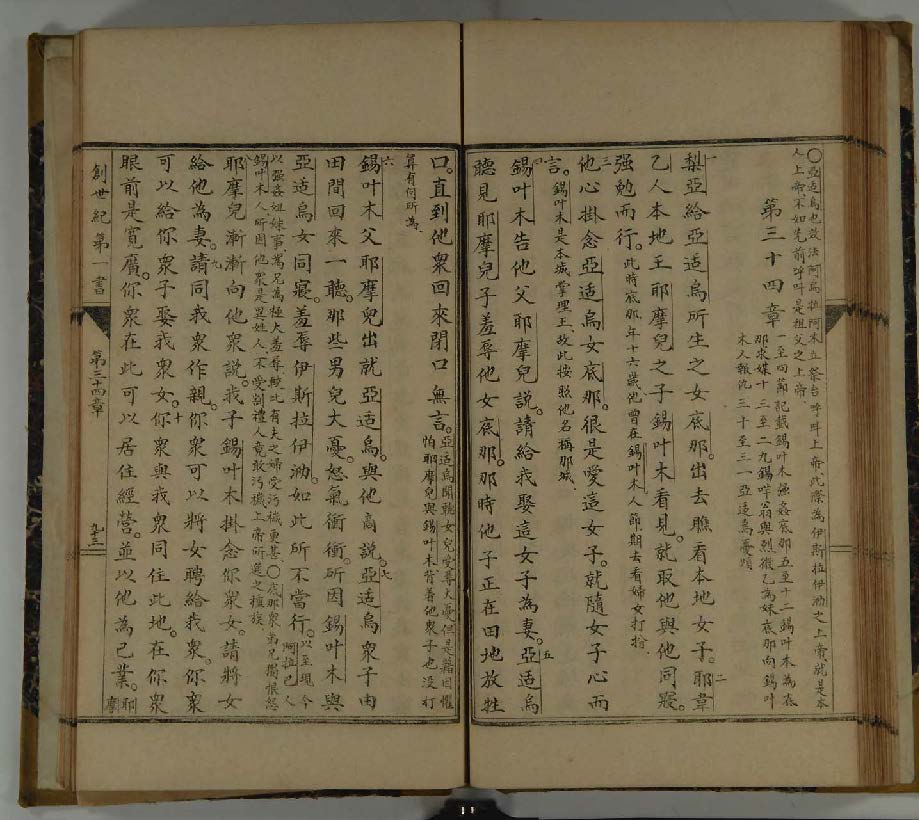 〇亞适烏也效法阿烏拉阿木立祭台呼呌上帝此際為伊斯拉伊泐之上帝就是本
人上帝不如先前呼呌是祖父之上帝
第三十四章
一至四節記載錫叶木強姦底那五至十二錫叶木為底
那求媒十三至二九錫哶翁與烈微乙為妹底那向錫叶
木人報仇三十至三一亞适烏憂煩
一梨亞給亞适烏所生之女底那。出去瞧看本地女子。二耶韋
乙人本地王耶摩兒之子錫叶木看見。就取他與他同寢。
強勉而行。此時底那年十六歲他曾在錫叶木人節期去看婦女打扮
三他心掛念亞适烏女底那。很是愛這女子。就隨女子心而
言。錫叶木是本城掌理王。故此按照他名稱那城
四錫叶木告他父耶摩兒說。請給我娶這女子為妻。五亞适烏
聽見耶摩兒子羞辱他女底那。那時他子正在田地放牲
口。直到他衆回來閉口無言。亞适烏聞聽女兒受辱大憂但是藉因懼
怕耶摩兒與錫叶木背着他衆子也沒打
算有何所為
六錫叶木父耶摩兒出就亞适烏。與他商說。七亞适烏衆子由
田間回來一聽。那些男兒大憂。怒氣衝衝。所因錫叶木與
亞适烏女同寢。羞辱伊斯拉伊泐。如此所不當行。以至現今阿拉已人
以強姦姐妹事為兄為極大羞辱較比有夫之婦受污穢更甚〇底那衆弟兄獨恨怒
錫叶木人所因他衆是異姓人不受割禮人竟敢污穢上帝所選之種族
八耶摩兒漸漸向他衆說。我子錫叶木掛念你衆女。請將女
給他為妻。九請同我衆作親。你衆可以將女聘給我衆。你衆
可以給你衆子娶我衆女。十你衆與我衆同住此地。在你衆
眼前是寬廣。你衆在此可以居住經營。並以他為己業。耶摩
創世紀第一書
第三十四章
九十三